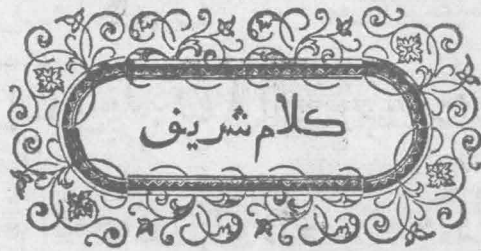 كلام شريف